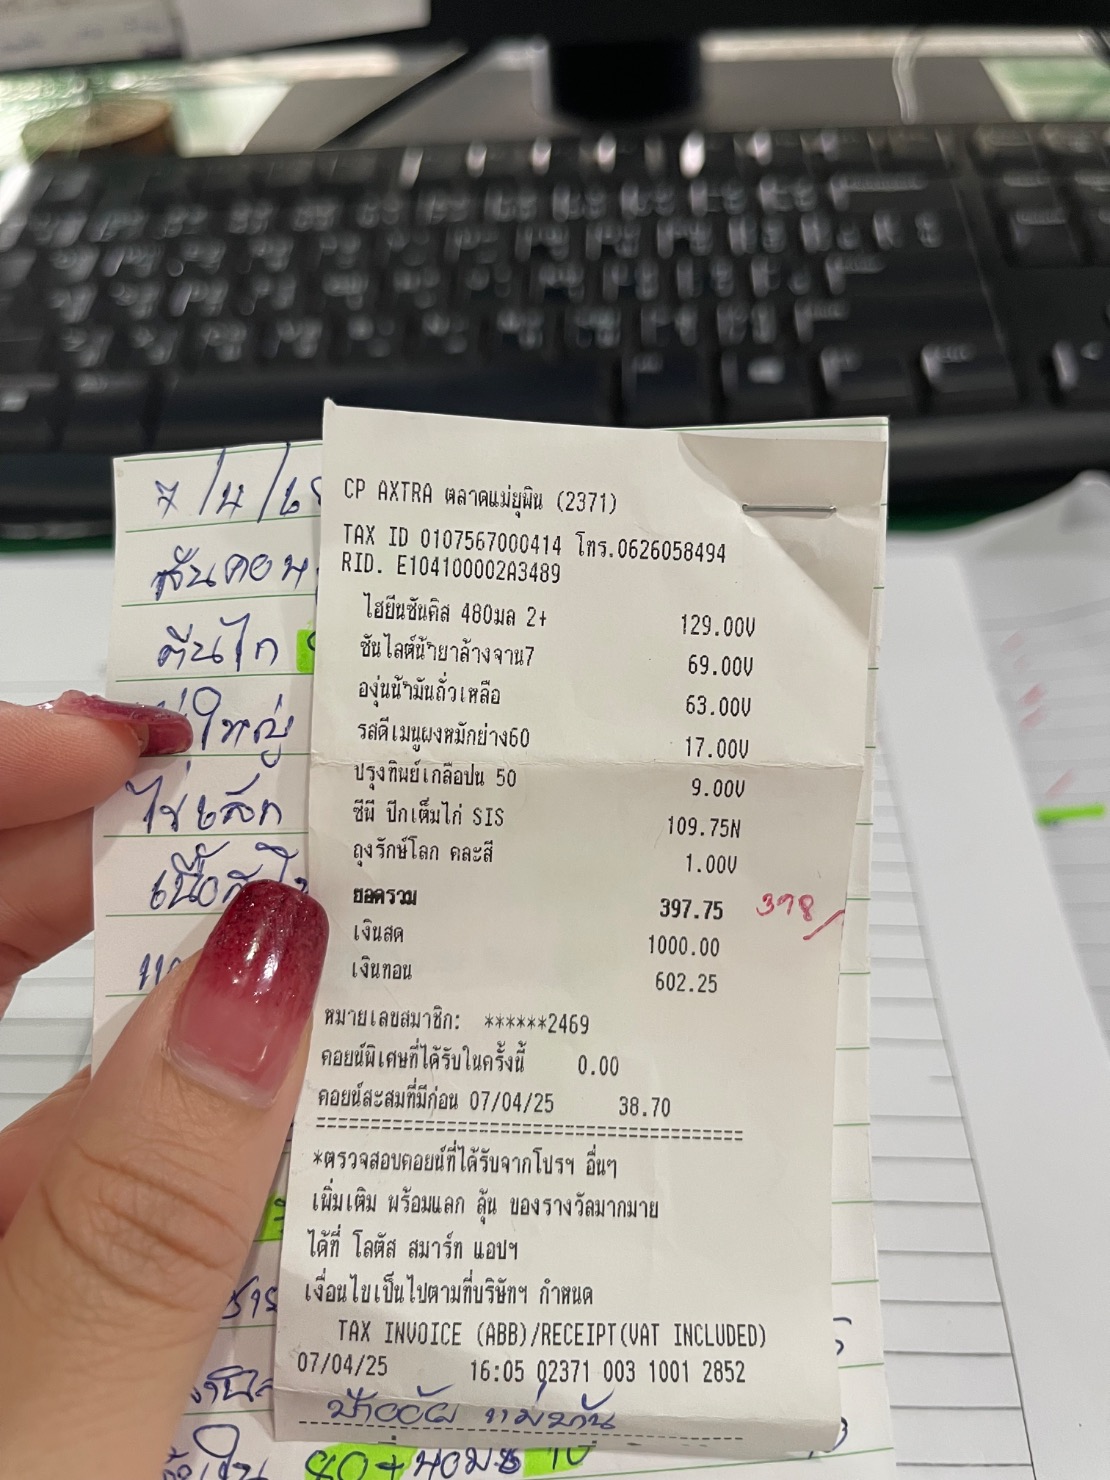 7/4/6
สันคอห
ตีนไก่
ใหญ่
ไข่เล็ก
CP AXTRA ตลาดแม่ยุพิน (2371)
TAX ID 0107567000414 โทร.0626058494
RID. E104100002A3489
ไฮยีนซันคิส 480มล 2+ 129.00V
ซันไลต์น้ำยาล้างจาน7 69.00V
องุ่นน้ำมันถั่วเหลือ 63.00V
รสดีเมนูผงหมักย่าง60 17.00V
ปรุงทิพย์เกลือป่น 50 9.00V
ซีพี ปีกเต็มไก่ SIS 109.75N
ถุงรักษ์โลก คละสี 1.00V
ยอดรวม 397.75 398/
เงินสด 1000.00
เงินทอน 602.25
หมายเลขสมาชิก: ******2469
คอยน์พิเศษที่ได้รับในครั้งนี้ 0.00
คอยน์สะสมที่มีก่อน 07/04/25 38.70
=====================================
*ตรวจสอบคอยน์ที่ได้รับจากโปรฯ อื่นๆ
เพิ่มเติม พร้อมแลก ลุ้น ของรางวัลมากมาย
ได้ที่ โลตัส สมาร์ท แอปฯ
เงื่อนไขเป็นไปตามที่บริษัทฯ กำหนด
TAX INVOICE (ABB)/RECEIPT(VAT INCLUDED)
07/04/25 16:05 02371 003 1001 2852
80+